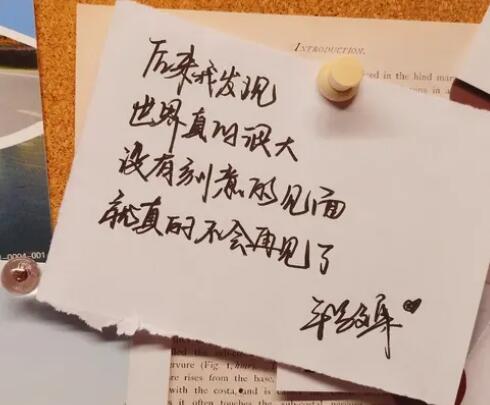 INTRODUCTION.
in the hind
后来我发现
世界真的很大
没有刻意的见面
就真的不会再见了
0004-001
(Fig. 1,
rises from the base,
with the costa, and is
often touches the